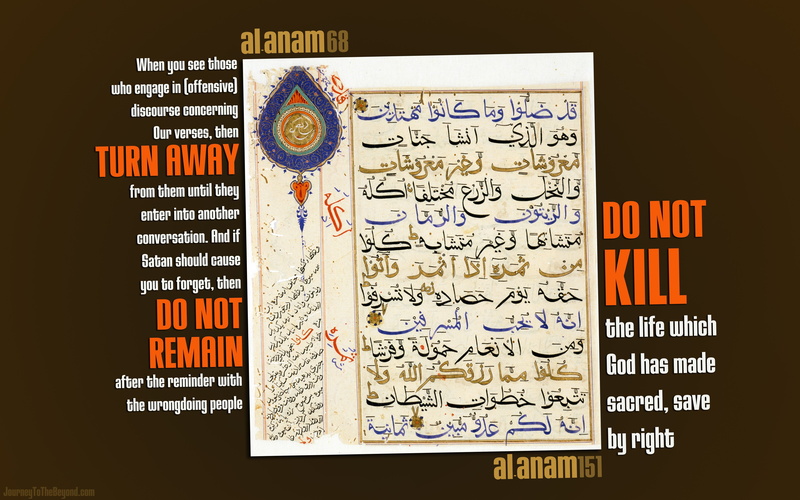 al-anam 68
When you see those
who engage in (offensive)
discourse concerning
Our verses, then
TURN AWAY
from them until they
enter into another
conversation. And if
Satan should cause
you to forget, then
DO NOT
REMAIN
after the reminder with
the wrongdoing people
قد ضلوا وما كانوا مهتدين
وهو الذي أنشأ جنات
معروشات وغير معروشات
والنخل والزرع مختلفا أكله
والزيتون والرمان
متشابها وغير متشابه كلوا
من ثمره إذا أثمر وآتوا
حقه يوم حصاده ولا تسرفوا
إنه لا يحب المسرفين
ومن الأنعام حمولة وفرشا
كلوا مما رزقكم الله ولا
تتبعوا خطوات الشيطان
إنه لكم عدو مبين ثمانية
DO NOT
KILL
the life which
God has made
sacred, save
by right
al-anam 151
JourneyToTheBeyond.com